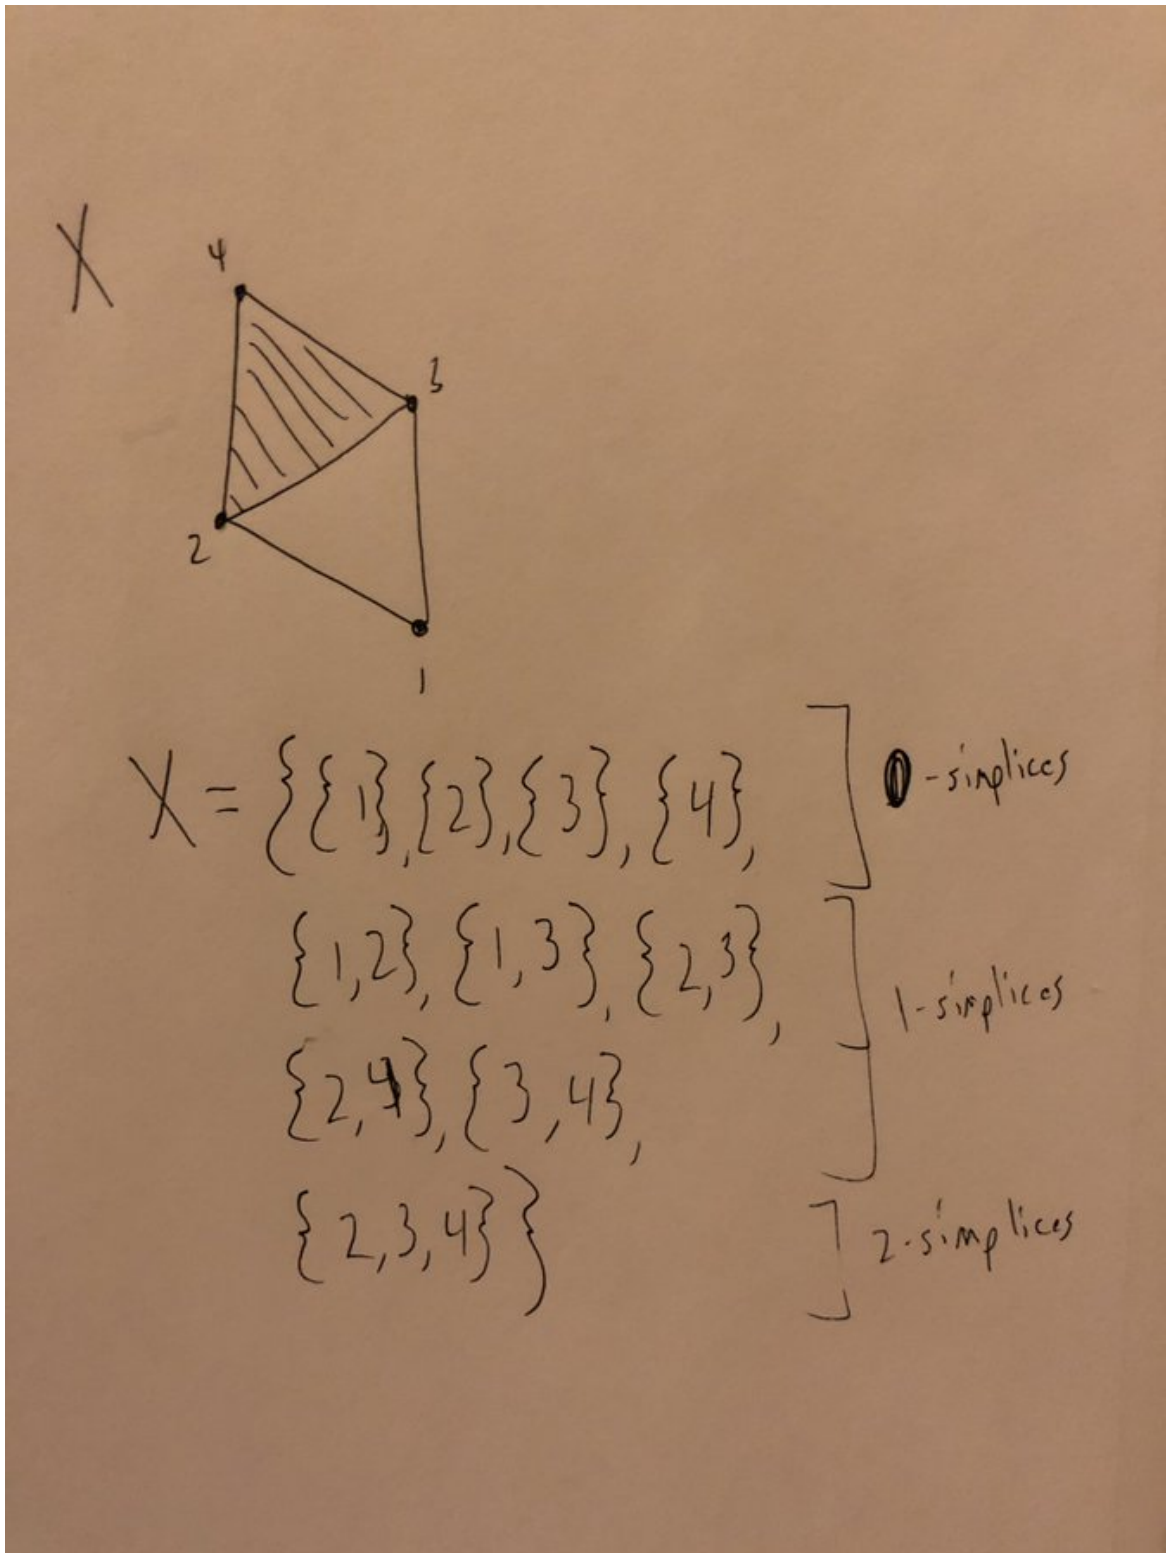 X
4
3
2
1
X = {{1}, {2}, {3}, {4}, ] 0-simplices
{1,2}, {1,3}, {2,3},
{2,4}, {3,4}, ] 1-simplices
{2,3,4}} ] 2-simplices